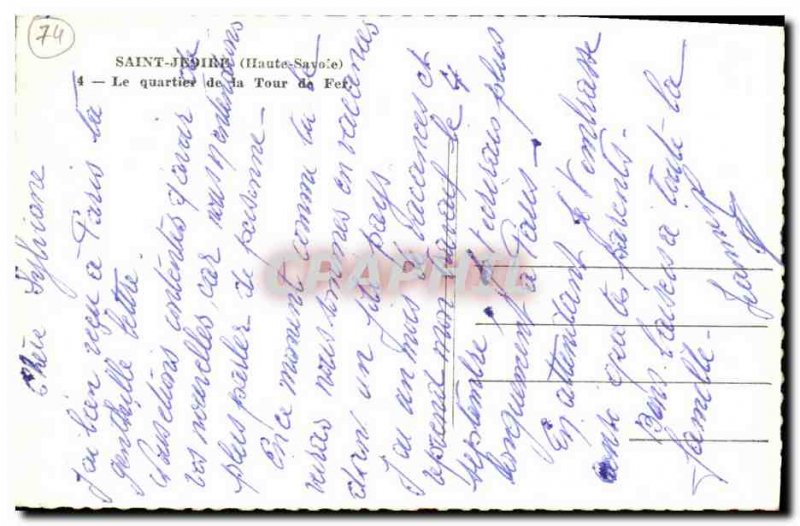 74
SAINT-JEOIRE (Haute-Savoie)
4 — Le quartier de la Tour de Fer
CPAPHIL
Chère Sylviane
J'ai bien reçu à Paris ta
gentille lettre.
nous étions contentes d'avoir de
vos nouvelles, car nous n'entendions
plus parler de personne -
En ce moment comme tu le
verras nous sommes en vacances
dans un joli pays
J'ai un mois de vacances et
reprend mon travail le 7
septembre. J'écrirais plus
longuement à Paris -
En attendant je t'embrasse
ainsi que tes parents -
Bons baisers à toute la
famille -